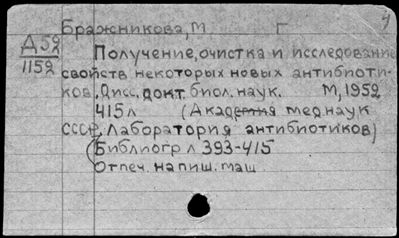 Бражникова, М Г
Д52
1152
Получение, очистка и исследование
свойств некоторых новых антибиоти-
ков. Дисс. докт. биол. наук. М, 1952
415л (Академия мед наук
СССР. Лаборатория антибиотиков)
(Библиогр л 393-415
Отпеч. на пиш. маш